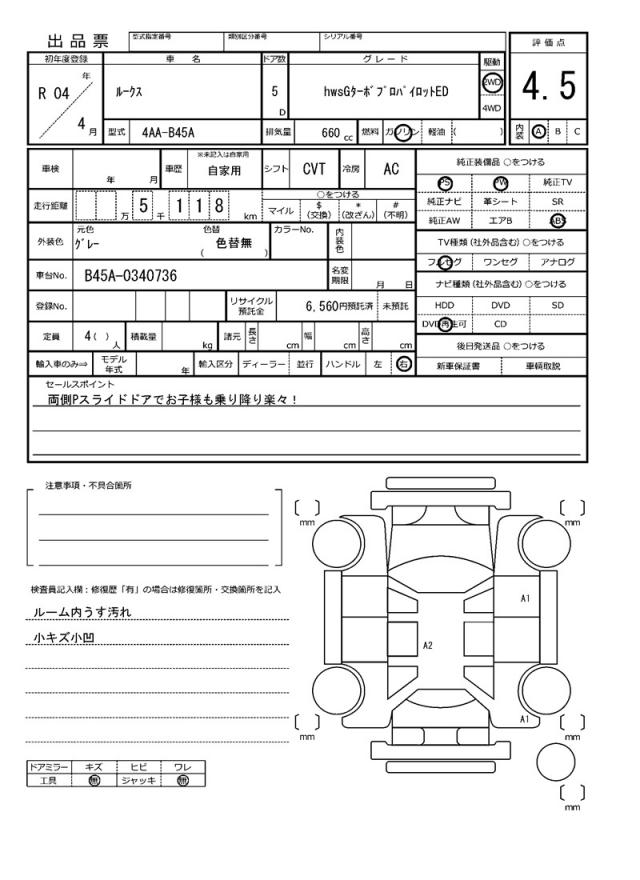 出品票
型式指定番号 類別区分番号 シリアル番号
評価点
初年度登録 車名 ドア数 グレード 駆動
R 04 年 4 月
ルークス 5 D hwsGターボプロパイロットED 2WD 4WD
4.5
型式 4AA-B45A 排気量 660 cc 燃料 ガソリン 軽油 ( ) 内装 A B C
車検 年 月 車歴 ※未記入は自家用 自家用 シフト CVT 冷房 AC
純正装備品 ○をつける
PS PW 純正TV
純正ナビ 革シート SR
純正AW エアB ABS
走行距離 万 5 千 1 1 8 km
○をつける
マイル $(交換) *(改ざん) #(不明)
外装色 元色 グレー 色替 色替無 ( ) カラーNo. 内装色
TV種類(社外品含む)○をつける
フルセグ ワンセグ アナログ
車台No. B45A-0340736 名変期限 月 日
ナビ種類(社外品含む)○をつける
HDD DVD SD
DVD再生可 CD
登録No. リサイクル預託金 6,560円預託済 未預託
定員 4( )人 積載量 kg 諸元 長さ cm 幅 cm 高さ cm
後日発送品 ○をつける
新車保証書 車輌取説
輸入車のみ⇒ モデル年式 年 輸入区分 ディーラー 並行 ハンドル 左 右
セールスポイント
両側Pスライドドアでお子様も乗り降り楽々!
注意事項・不具合箇所
検査員記入欄:修復歴「有」の場合は修復箇所・交換箇所を記入
ルーム内うす汚れ
小キズ小凹
mm
mm
A1
A2
A1
mm
mm
mm
ドアミラー キズ ヒビ ワレ
工具 無 ジャッキ 無